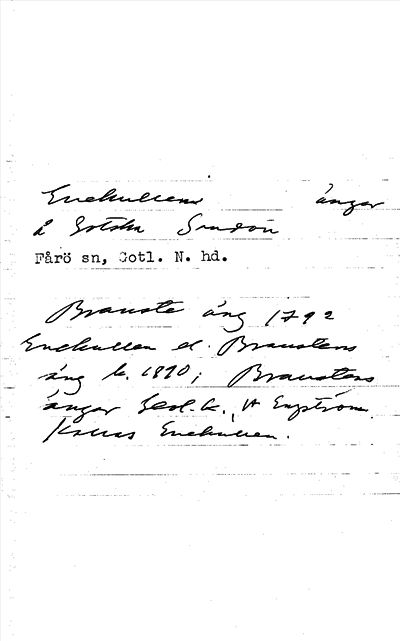 Enekullens ängar
å Gotska Sandön
Fårö sn, Gotl. N. hd.
Brauste äng 1792
Enekullen el. Braustens
äng k. 1890; Braustens
ängar Geol. k., A Engström
kallas Enekullen.